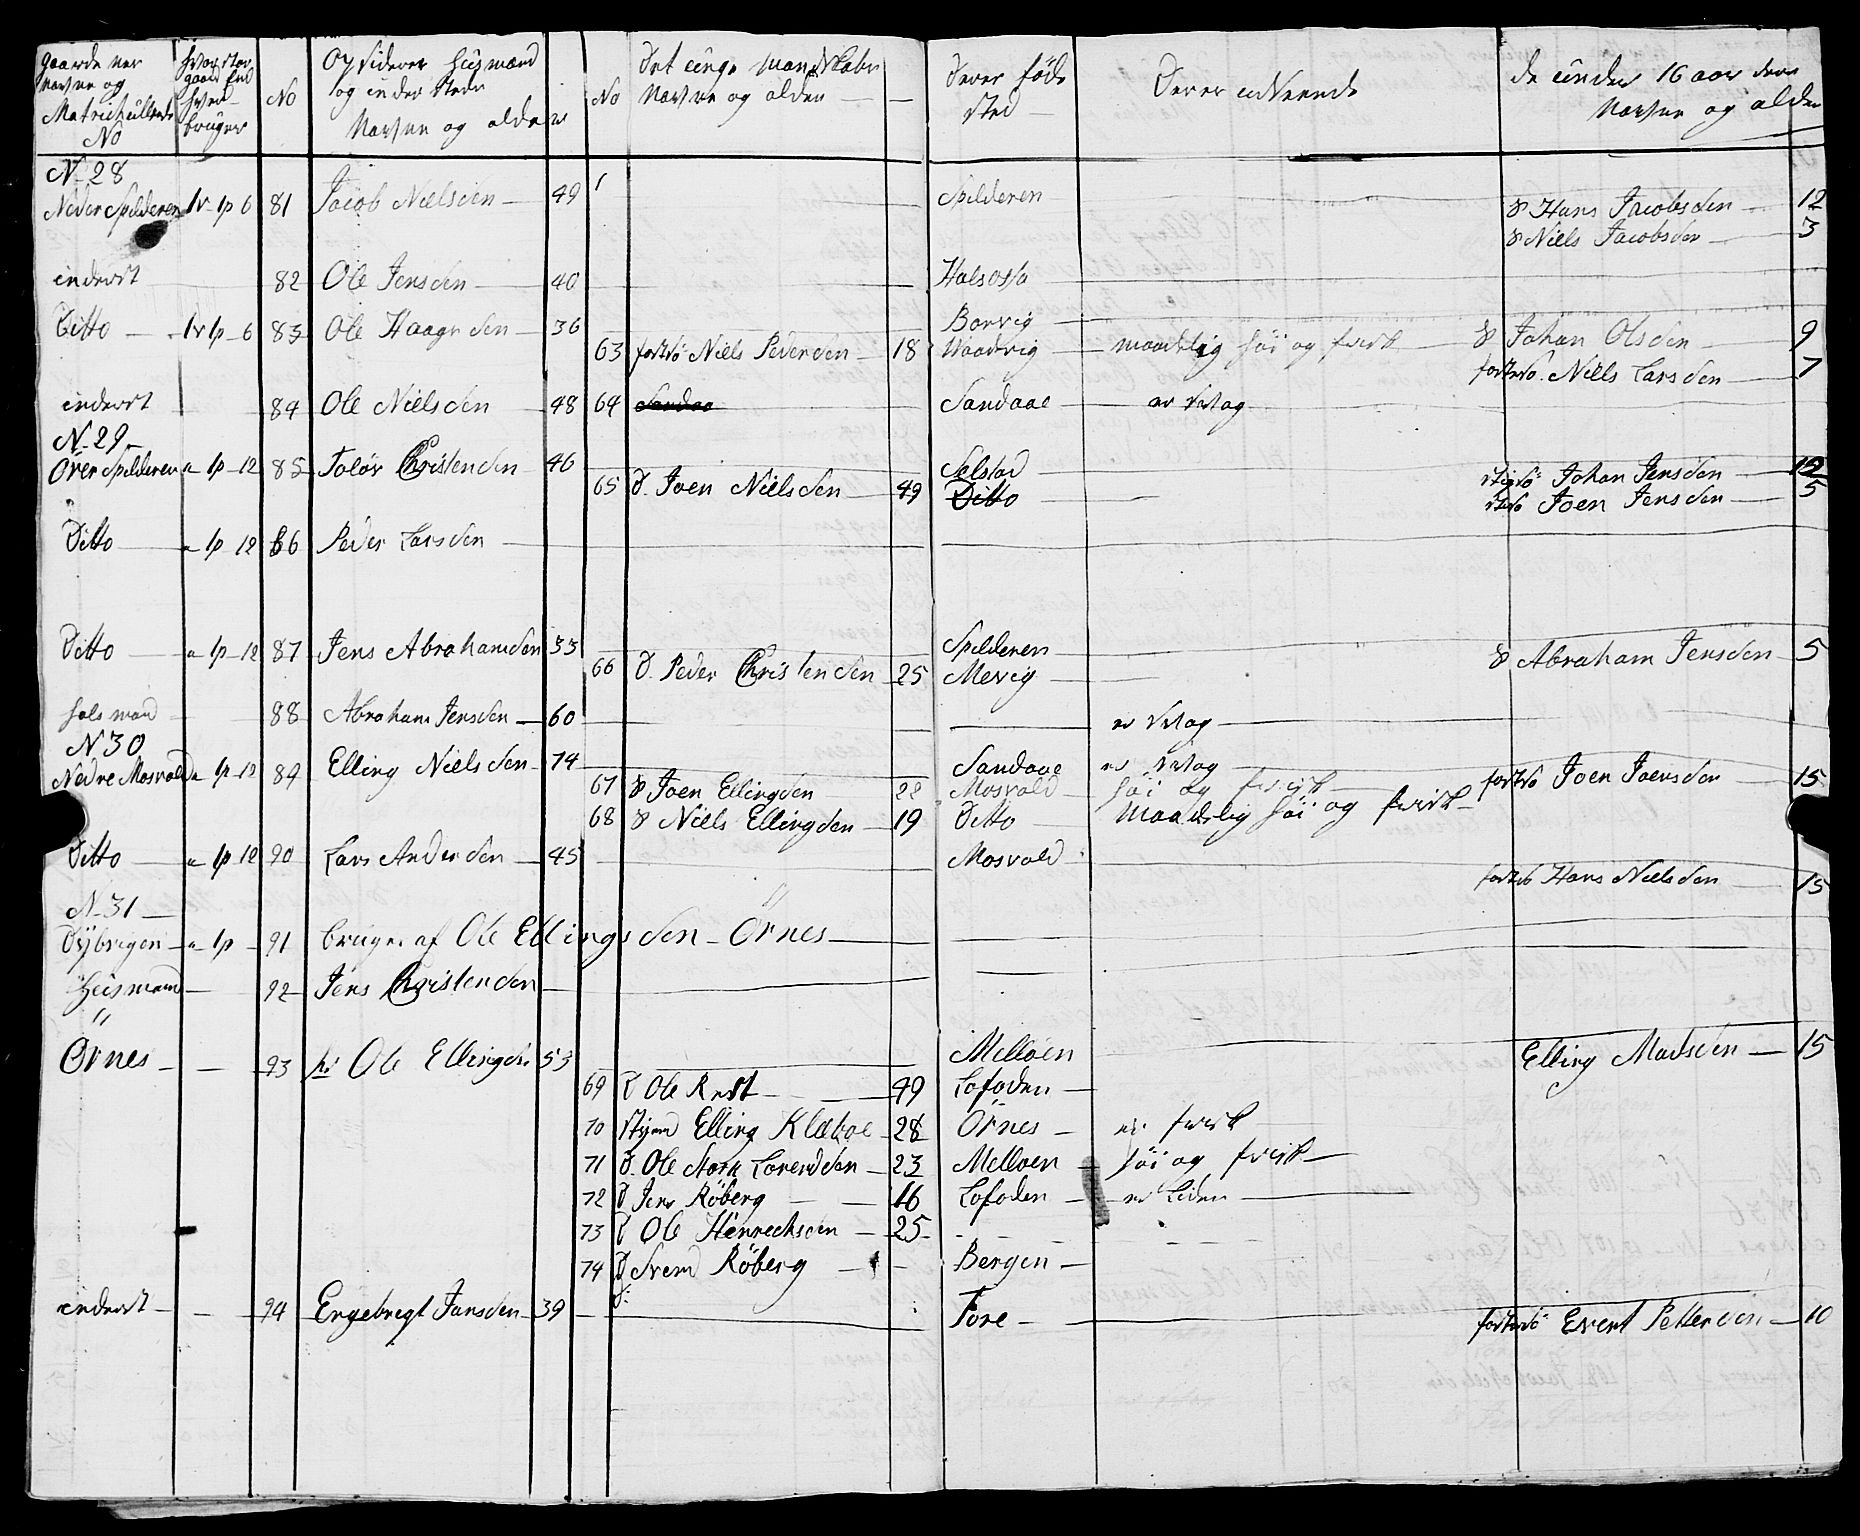 Gaardenes Navne og Matricullens No | hvor stor gaard End hver bruger | No | Opsidere Husmænd og inderster Navne og alder | No | Det unge Mandskabs Navne og alder | Deres føde sted | Deres udseende | de under 16 aar deres Navne og alder
N-28
Neder Spilderen 1v-1p 6 81 Jacob Nielsen 49 Spilderen S Hans Jacobsden 12
S Niels Jacobsden 3
inderst 82 Ole Jensden 40 Halsosa
Ditto 1v 1p-6 83 Ole Haagensden 36 Borvig S Johan Olsden 9
63 fostersø Niels Pedersden 18 Waadvig maadelig høi og frisk fostersø Niels Larsden 7
inderst 84 Ole Nielsden 48 64 Sandaae er svag
N-29
Över Spilderen 1p-12 85 Tolöv Christensden 46 Selstad stifsö Johan Jensden 12
65 D. Joen Nielsden 49 Ditto Joen Jensden 5
Ditto 1p 12 86 Peder Larsden
Ditto 1p-12 87 Jens Abrahamsden 33 Spilderen S Abraham Jensden 5
66 D. Peder Christensden 25 Mevig
88 Abraham Jensden 60 er svag
N 30
Nedre Mosvold 1p-12 89 Elling Nielsden 74 Sandaae er svag fostersø Joen Joensden 15
67 S Joen Ellingsden 22 Mosvold høi og frisk
68 S Niels Ellingsden 19 Ditto maadelig høi og frisk
Ditto 1p 12 90 Lars Andersden 45 Mosvold
fostersø Hans Nielsden 15
N-31
Dybvigen 1p 91 bruges af Ole Ellingsden Örnes
Husmand 92 Jens Christensden
Örnes 93 hr Ole Ellingsen 53 Melløen Elling Madsden 15
69 D Ole Rest 49 Lofoden
70 Elling Klæboe 28 Örnes er frisk
71 D. Ole Stork Lorendsden 23 Melløen høi og frisk
72 D Jens Röberg 16 Lofoden er liden
73 D Ole Henrechsden 25
74 D Svend Röberg Bergen
D:
inderst 94 Engebregt Jansden 39 Fore fostersö Evert Pettersden 10